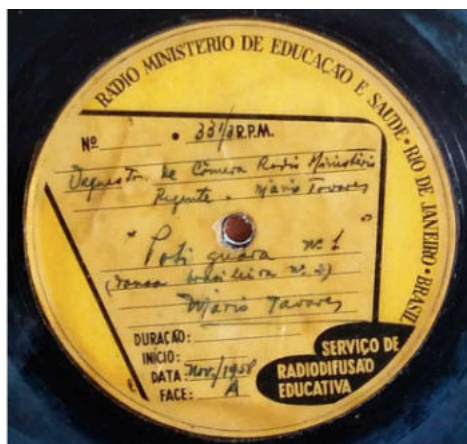 RADIO MINISTERIO DE EDUCAÇÃO E SAUDE • RIO DE JANEIRO • BRASIL
Nº • 33 1/3 R.P.M.
Orquestra de Câmera Radio Ministério
Regente . Mário Tavares
"Potiguara nº 1"
(dansa brasileira nº 2)
Mário Tavares
DURAÇÃO:
INÍCIO:
DATA: Nov/1958
FACE: A
SERVIÇO DE
RADIODIFUSÃO
EDUCATIVA